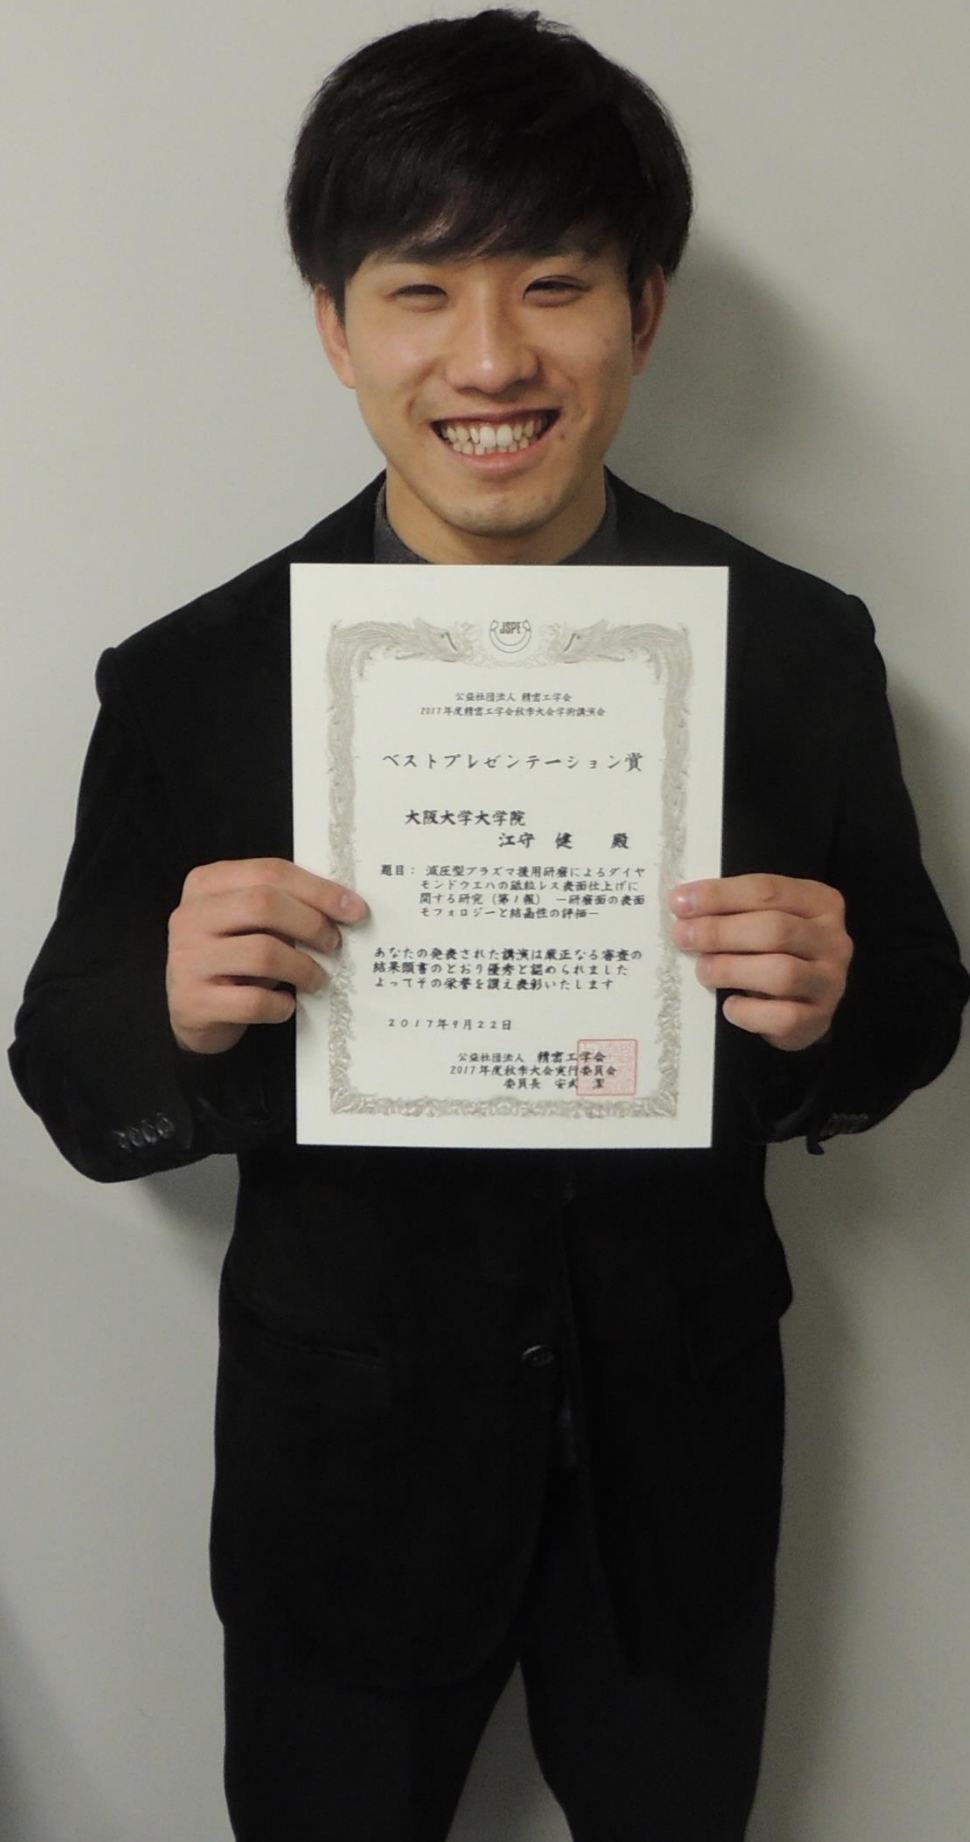 JSPE
公益社団法人 精密工学会
2017年度精密工学会秋季大会学術講演会
ベストプレゼンテーション賞
大阪大学大学院
江守 健 殿
題目： 減圧型プラズマ援用研磨によるダイヤ
モンドウエハの砥粒レス表面仕上げに
関する研究（第1報） －研磨面の表面
モフォロジーと結晶性の評価－
あなたの発表された講演は厳正なる審査の
結果頭書のとおり優秀と認められました
よってその栄誉を讃え表彰いたします
2017年9月22日
公益社団法人 精密工学会
2017年度秋季大会実行委員会
委員長 安武 潔